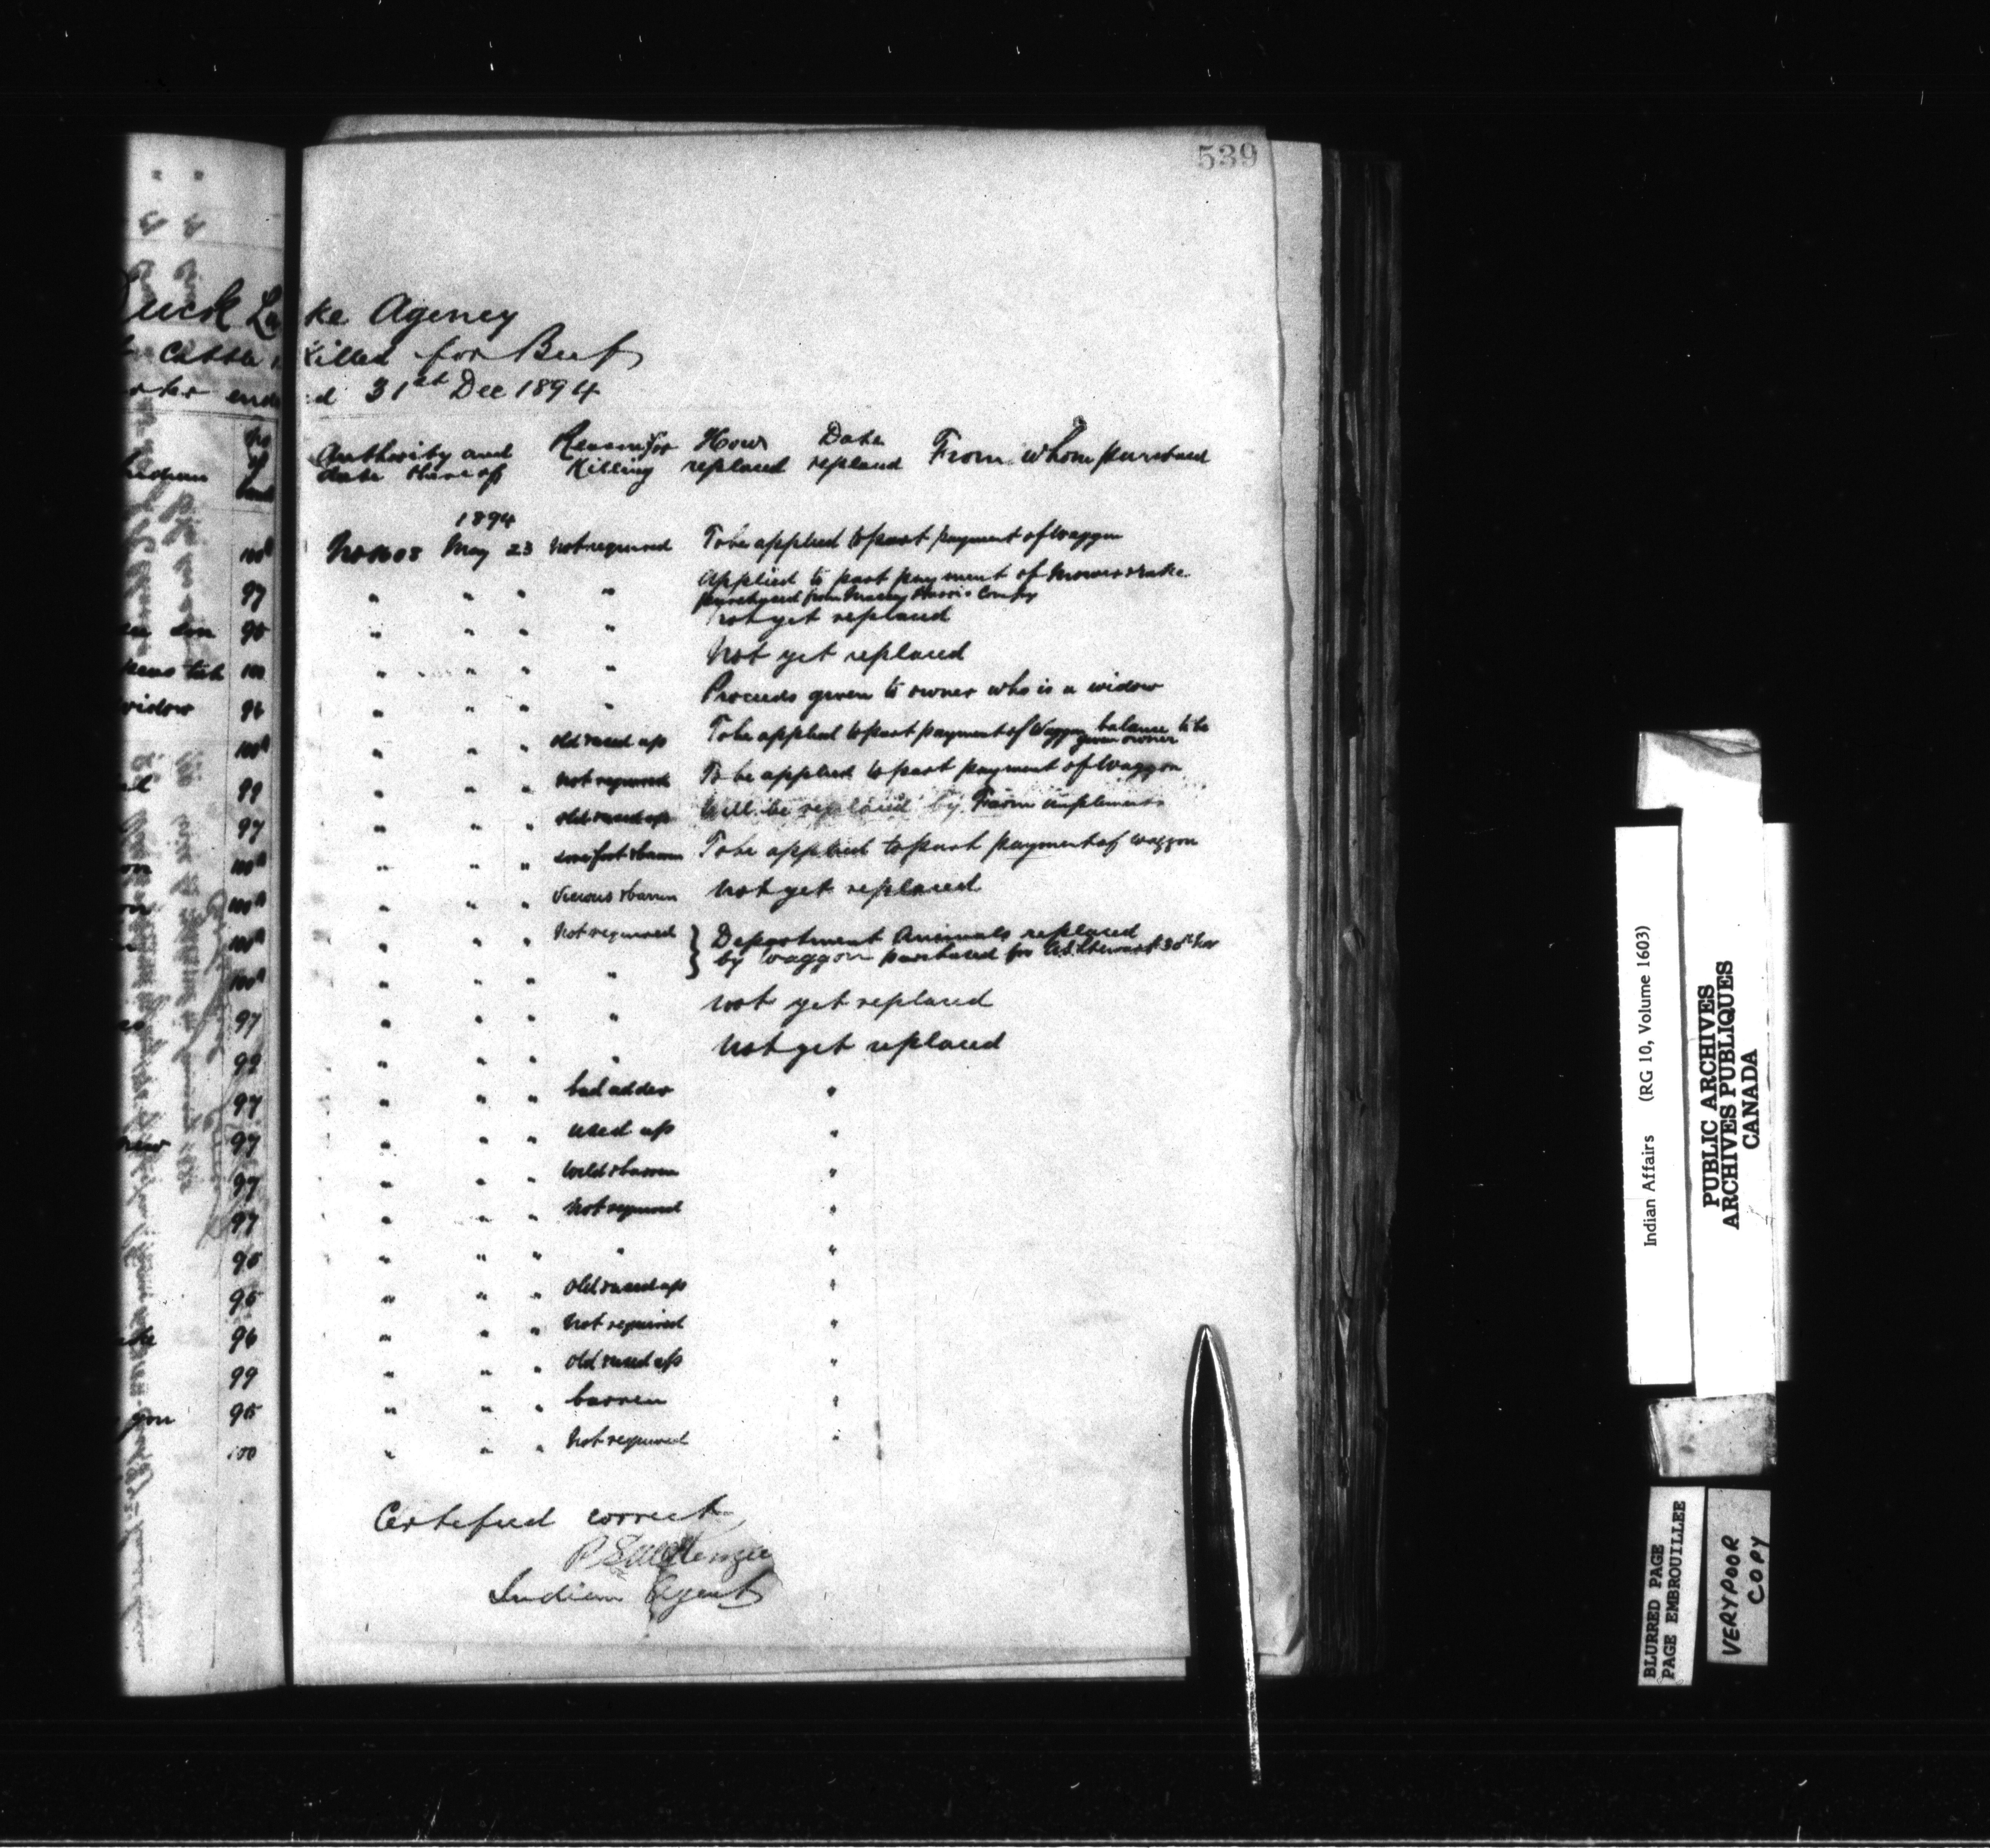 539
Duck Lake Agency
Cattle Killed for Beef
ended 31st Dec 1894
No of band
Authority and date thereof
Reason for Killing
How replaced
Date replaced
From whom purchased
1894
May 23 Not required To be applied to part payment of Waggon
100A
97 " " " " Applied to part payment of Mower & rake
purchased from Massey Harris Compy
son 95 " " " " Not yet replaced
100 " " " " Not yet replaced
widow 96 " " " " Proceeds given to owner who is a widow
100A " " " old & used up To be applied to part payment of Waggon balance to be given owner
99 " " " Not required To be applied to part payment of Waggon
97 " " " old & used up Will be replaced by Farm implements
100A " " " sore foot & barren To be applied to part payment of waggon
100A " " " Vicious & barren Not yet replaced
100A " " " Not required } Department Animals replaced
100A " " " " by waggon purchased fm Stewart 30th Nov
97 " " " " Not yet replaced
99 " " " " Not yet replaced
97 " " " bad udder "
97 " " " used up "
97 " " " Wild & barren "
97 " " " Not required "
95 " " " " "
95 " " " Old & used up "
96 " " " Not required "
99 " " " Old & used up "
95 " " " barren "
100 " " " Not required "
Certified correct
McKenzie
Indian Agent
Indian Affairs (RG 10, Volume 1603)
PUBLIC ARCHIVES
ARCHIVES PUBLIQUES
CANADA
BLURRED PAGE
PAGE EMBROUILLEE
VERY POOR
COPY